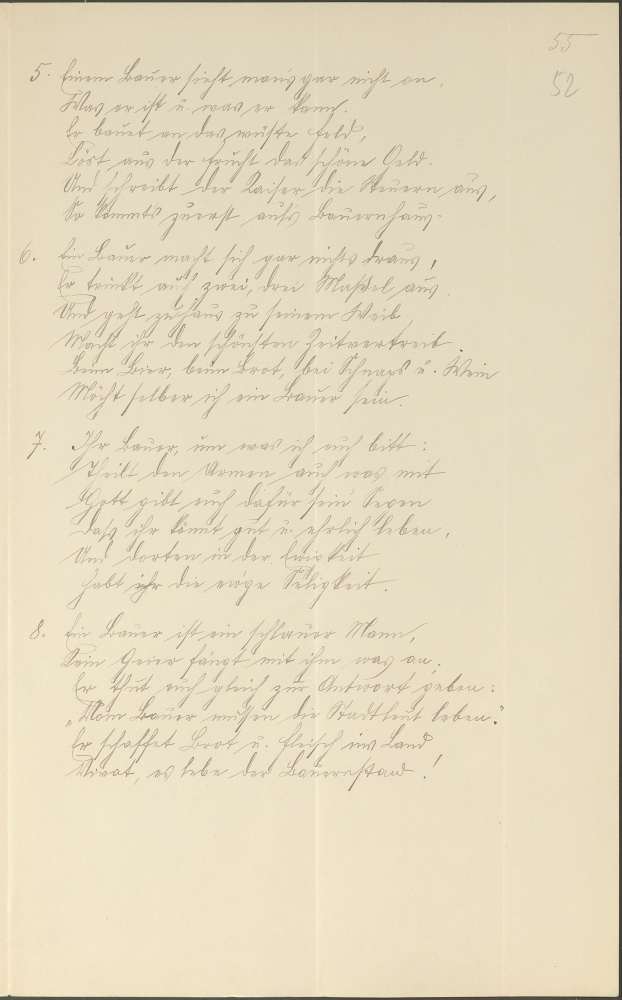 55
52
5. Einem Bauer sieht man's gar nicht an,
Was er ist u. was er kann.
Er bauet an das wüste Feld,
Löst aus der Frucht das schöne Geld.
Und schreibt der Kaiser die Steuern aus,
So kommts zuerst aufs Bauernhaus.
6. Ein Bauer macht sich gar nichts draus,
Er trinkt auch zwei, drei Maßel aus
Und geht zuhaus zu seinem Weib
Macht ihr den schönsten Zeitvertreib.
Beim Bier, beim Brot, bei Schnaps u. Wein
Möcht selber ich ein Bauer sein.
7. Ihr Bauer, um was ich euch bitt:
Theilt den Armen auch was mit
Gott gibt euch dafür sein Segen
Dass ihr könnt gut u. ehrlich leben,
Und dorten in der Ewigkeit
Habt ihr die ewge Seligkeit.
8. Ein Bauer ist ein schlauer Mann,
Kein Geier fängt mit ihm was an,
Er thut euch gleich zur Antwort geben:
„Vom Bauer müssen die Stadtleut leben."
Er schaffet Brot u. Fleisch ins Land
Vivat, es lebe der Bauernstand!